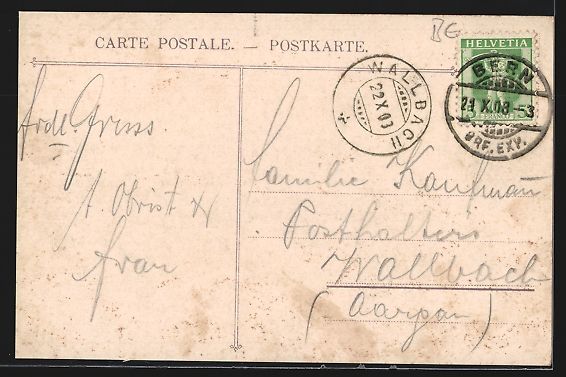 BE
CARTE POSTALE. — POSTKARTE.
HELVETIA
FRANCO
WALLBACH
22.X.03
BERN
21.X.08.-5
BRF.EXP.
Gruss.
A Obrist &
frau
Familie Kaufmann
Posthalters
Wallbach
(Aargau)